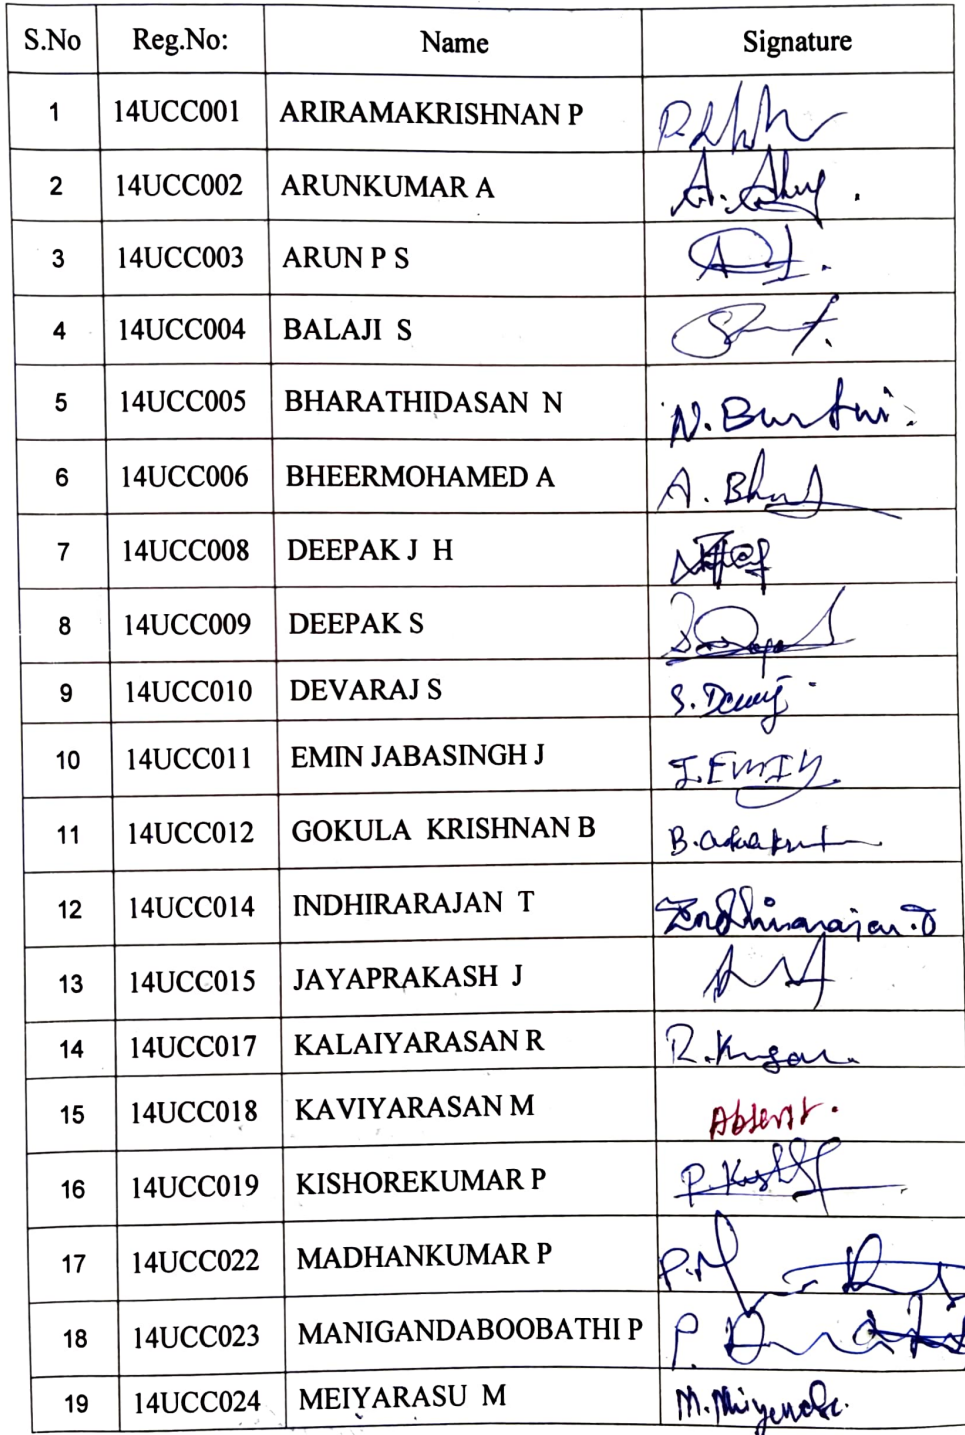 S.No Reg.No: Name Signature
1 14UCC001 ARIRAMAKRISHNAN P
2 14UCC002 ARUNKUMAR A A.
3 14UCC003 ARUN P S
4 14UCC004 BALAJI S
5 14UCC005 BHARATHIDASAN N N.
6 14UCC006 BHEERMOHAMED A A.
7 14UCC008 DEEPAK J H
8 14UCC009 DEEPAK S
9 14UCC010 DEVARAJ S S.
10 14UCC011 EMIN JABASINGH J
11 14UCC012 GOKULA KRISHNAN B B.
12 14UCC014 INDHIRARAJAN T Indhirarajan.T
13 14UCC015 JAYAPRAKASH J
14 14UCC017 KALAIYARASAN R R.
15 14UCC018 KAVIYARASAN M Absent.
16 14UCC019 KISHOREKUMAR P P.
17 14UCC022 MADHANKUMAR P P.M
18 14UCC023 MANIGANDABOOBATHI P P.
19 14UCC024 MEIYARASU M M.